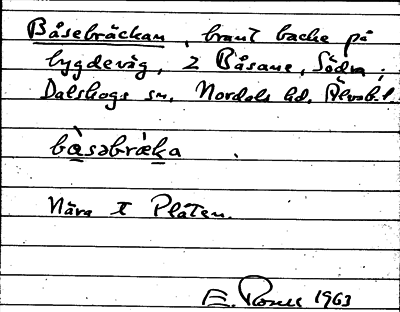 Båsebräckan, brant backe på
bygdeväg, z Båsane, Södra,
Dalskogs sn, Nordals hd, Älvsb. l.
bàsəbrὰka
Nära I Platen.
E. 1963